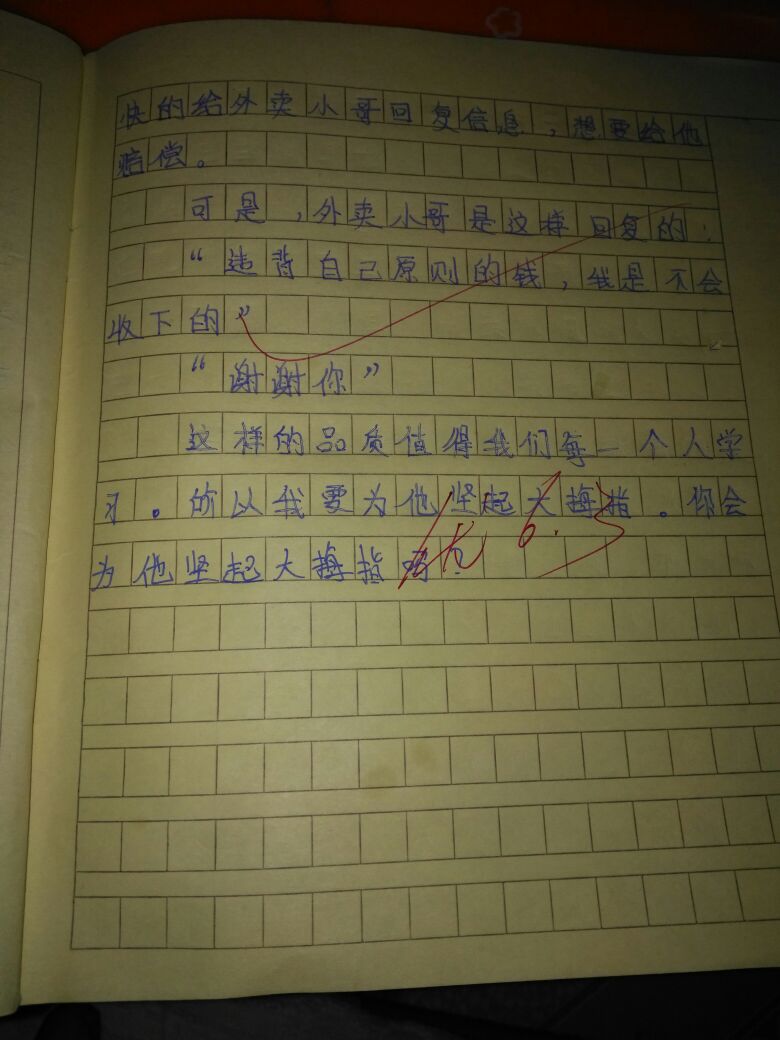 快的给外卖小哥回复信息，想要给他
赔偿。
可是，外卖小哥是这样回复的：
“违背自己原则的钱，我是不会
收下的”
“谢谢你”
这样的品质值得我们每一个人学
习。所以我要为他坚起大拇指。你会
为他坚起大拇指吗？
优 6.5